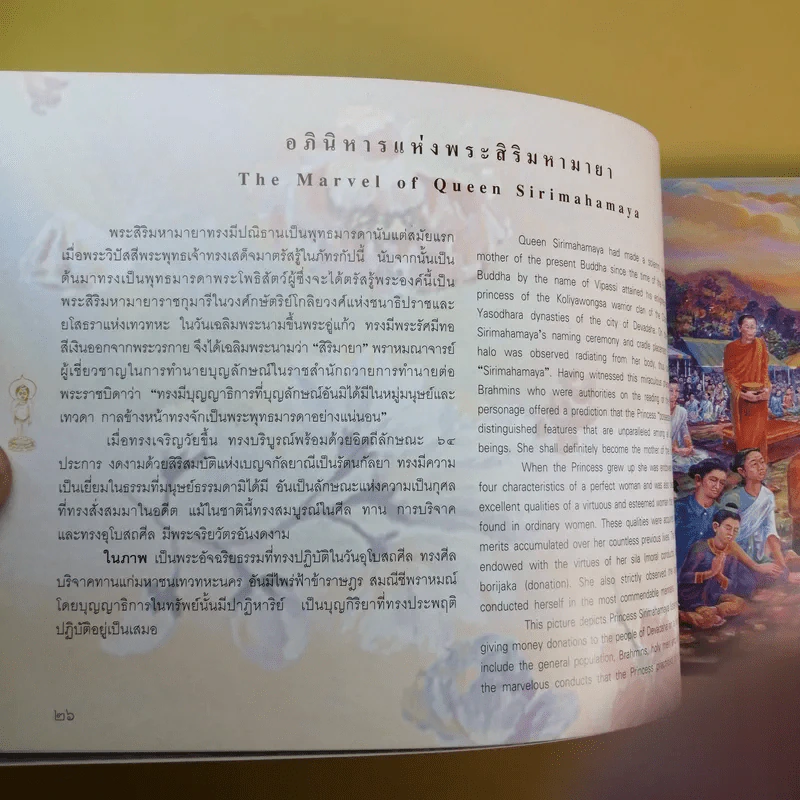 อภินิหารแห่งพระสิริมหามายา
The Marvel of Queen Sirimahamaya
พระสิริมหามายาทรงมีปณิธานเป็นพุทธมารดานับแต่สมัยแรก
เมื่อพระวิปัสสีพระพุทธเจ้าทรงเสด็จมาตรัสรู้ในภัทรกัปนี้ นับจากนั้นเป็น
ต้นมาทรงเป็นพุทธมารดาพระโพธิสัตว์ผู้ซึ่งจะได้ตรัสรู้พระองค์นี้เป็น
พระสิริมหามายาราชกุมารีในวงศ์กษัตริย์โกลิยวงศ์แห่งชนาธิปราชและ
ยโสธราแห่งเทวทหะ ในวันเฉลิมพระนามขึ้นพระอู่แก้ว ทรงมีพระรัศมีทอ
สีเงินออกจากพระวรกาย จึงได้เฉลิมพระนามว่า “สิริมายา” พราหมณาจารย์
ผู้เชี่ยวชาญในการทำนายบุญลักษณ์ในราชสำนักถวายการทำนายต่อ
พระราชบิดาว่า “ทรงมีบุญญาธิการที่บุญลักษณ์อันมิได้มีในหมู่มนุษย์และ
เทวดา กาลข้างหน้าทรงจักเป็นพระพุทธมารดาอย่างแน่นอน”
เมื่อทรงเจริญวัยขึ้น ทรงบริบูรณ์พร้อมด้วยอิตถีลักษณะ ๖๔
ประการ งดงามด้วยสิริสมบัติแห่งเบญจกัลยาณีเป็นรัตนกัลยา ทรงมีความ
เป็นเยี่ยมในธรรมที่มนุษย์ธรรมดามิได้มี อันเป็นลักษณะแห่งความเป็นกุศล
ที่ทรงสั่งสมมาในอดีต แม้ในชาตินี้ทรงสมบูรณ์ในศีล ทาน การบริจาค
และทรงอุโบสถศีล มีพระจริยวัตรอันงดงาม
ในภาพ เป็นพระอัจฉริยธรรมที่ทรงปฏิบัติในวันอุโบสถศีล ทรงศีล
บริจาคทานแก่มหาชนเทวทหะนคร อันมีไพร่ฟ้าข้าราษฎร สมณชีพราหมณ์
โดยบุญญาธิการในทรัพย์นั้นมีปาฏิหาริย์ เป็นบุญกิริยาที่ทรงประพฤติ
ปฏิบัติอยู่เป็นเสมอ
๒๖
Queen Sirimahamaya had made a
mother of the present Buddha since the time of the
Buddha by the name of Vipassi attained his
princess of the Koliyawongsa warrior clan of the
Yasodhara dynasties of the city of Devadaha. On
Sirimahamaya's naming ceremony and cradle
halo was observed radiating from her body,
“Sirimahamaya”. Having witnessed this miraculous
Brahmins who were authorities on the reading of
personage offered a prediction that the Princess
distinguished features that are unparalleled among
beings. She shall definitely become the mother of the
When the Princess grew up she was
four characteristics of a perfect woman and was
excellent qualities of a virtuous and esteemed woman
found in ordinary women. These qualities were
merits accumulated over her countless previous lives.
endowed with the virtues of her sila (moral
borijaka (donation). She also strictly observed the
conducted herself in the most commendable manner.
This picture depicts Princess Sirimahamaya
giving money donations to the people of Devadaha
include the general population, Brahmins, holy men
the marvelous conducts that the Princess